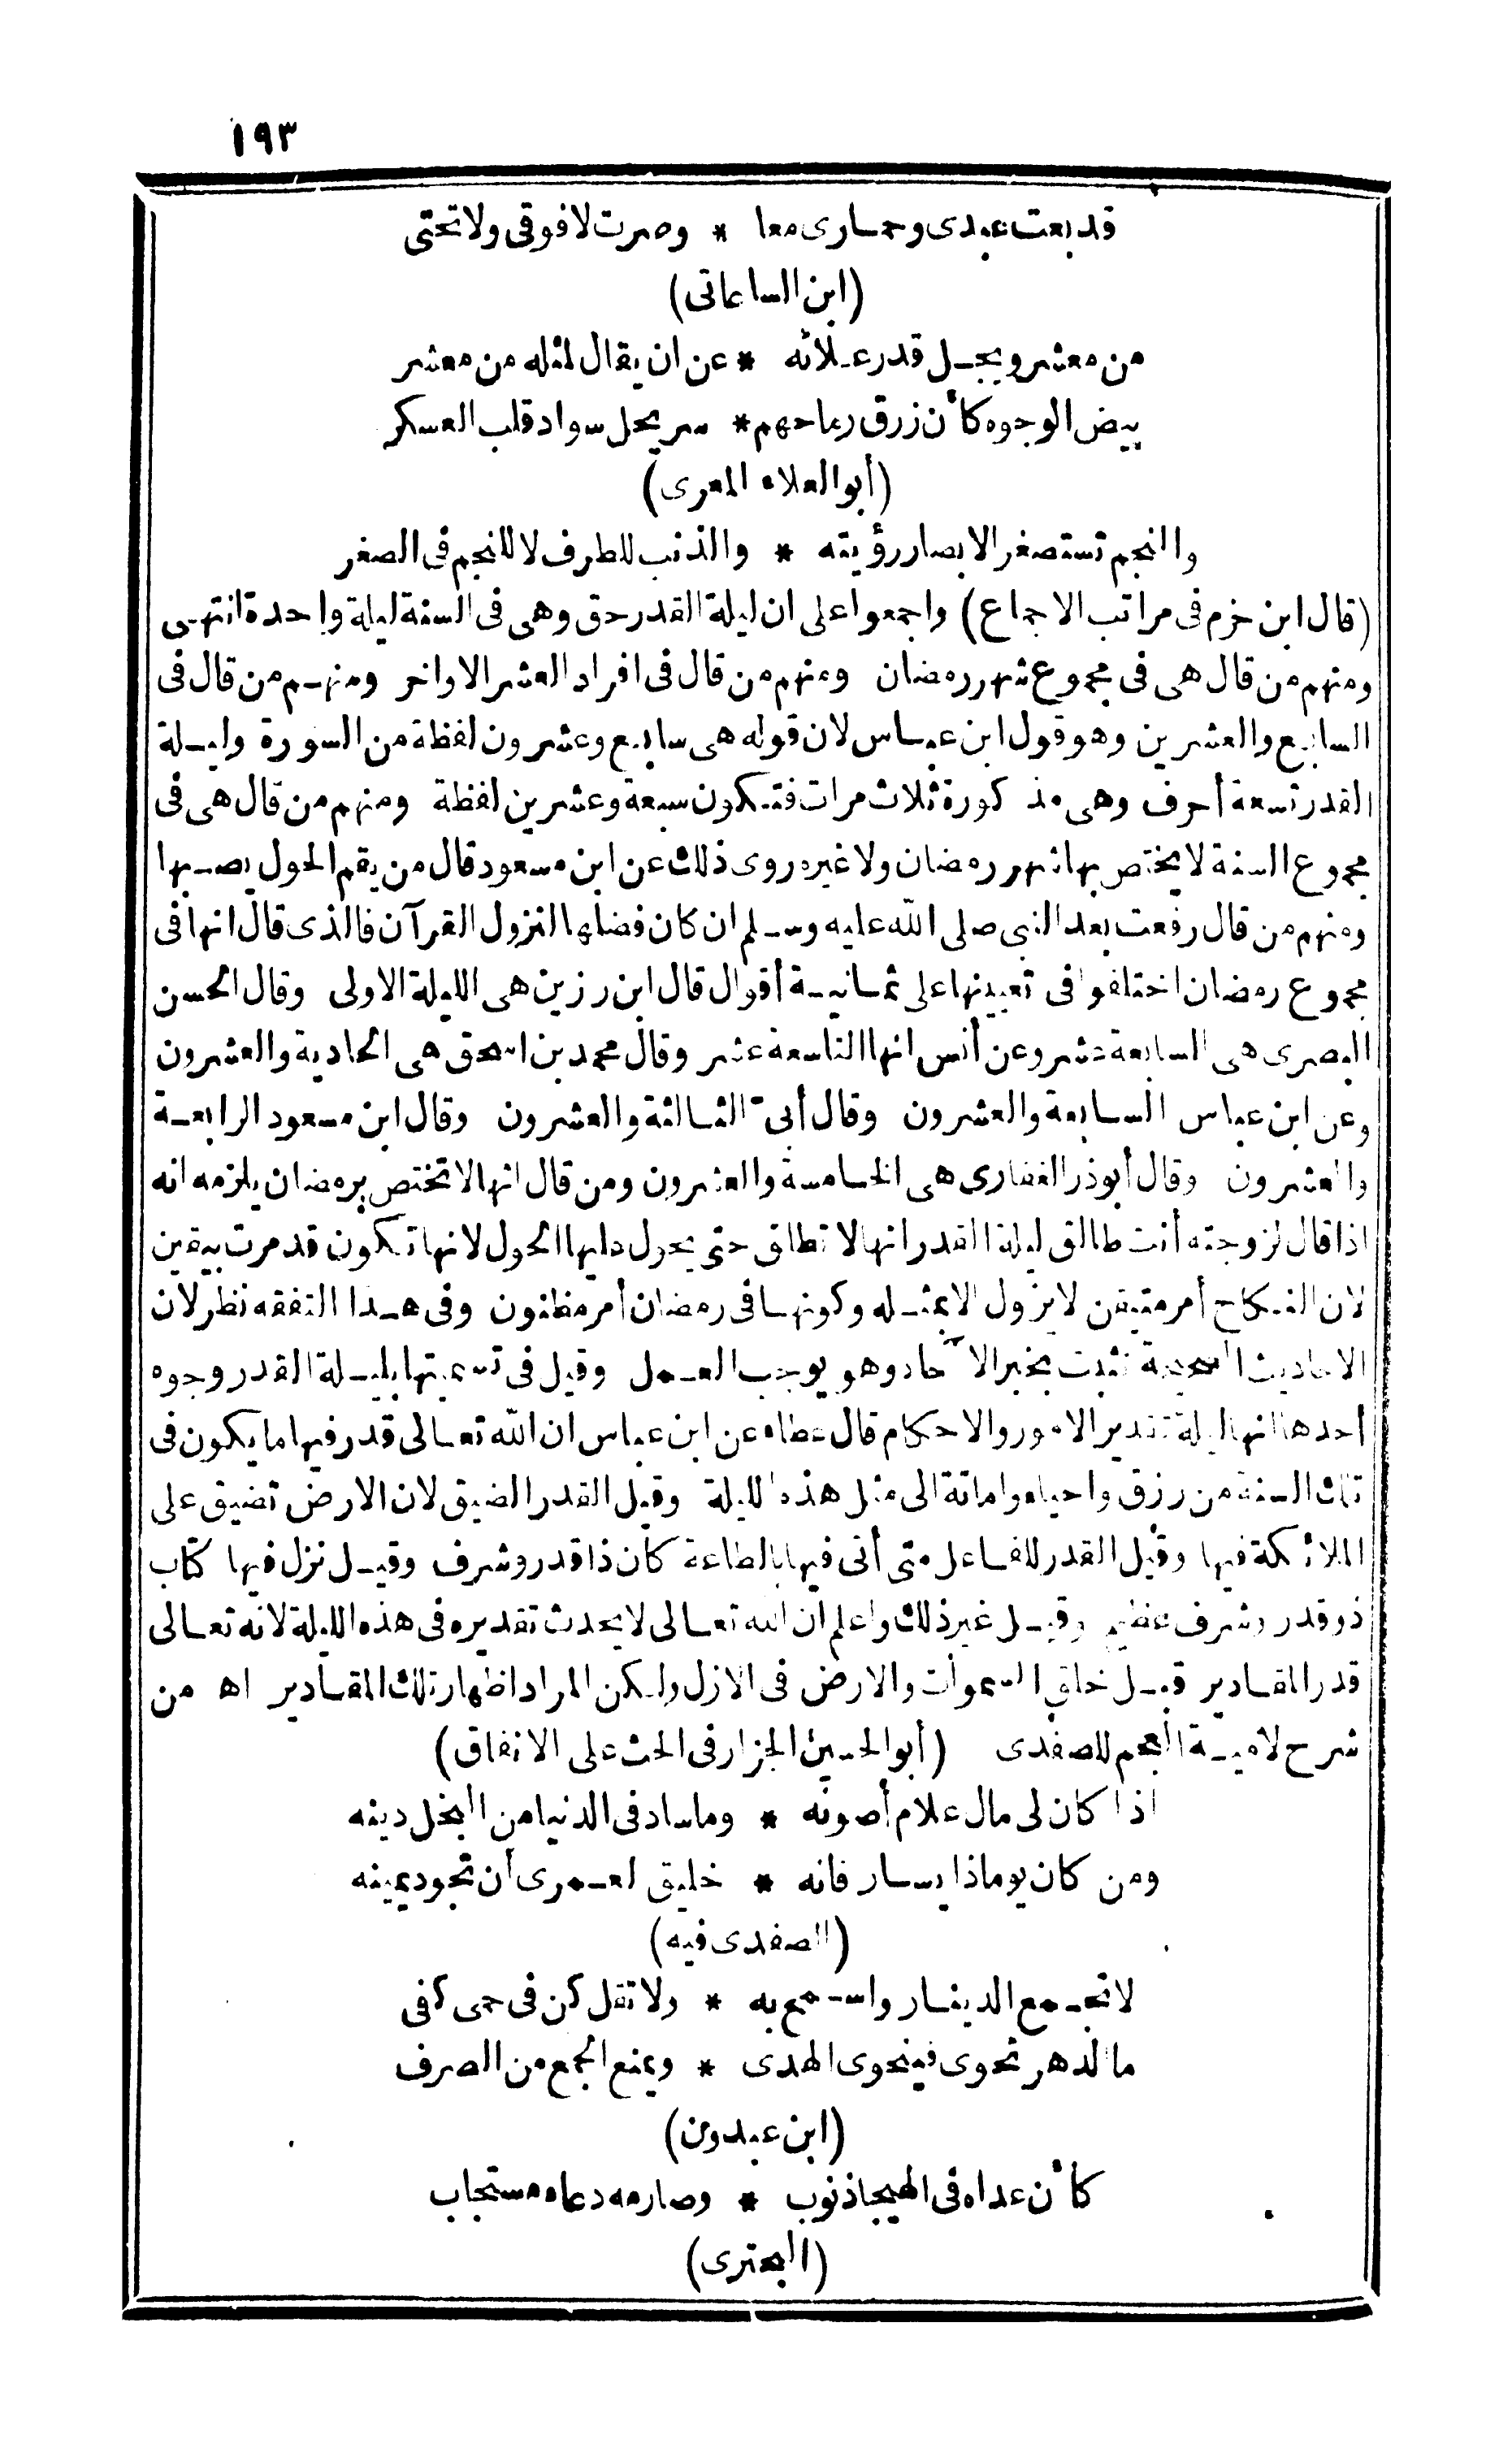 ١٩٣
قد بعت عبدى وحمارى معا * وصرت لا فوقى ولا تحتى
(ابن الساعاتى)
من معشر ويجل قدر علائه * عن ان يقال لمثله من معشر
بيض الوجوه كأن زرق رماحهم * سر يحل سواد قلب العسكر
(أبو العلاء المعرى)
والنجم تستصغر الابصار رؤيته * والذنب للطرف لا للنجم فى الصغر
(قال ابن حزم فى مراتب الاجماع) واجمعوا على ان ليلة القدر حق وهى فى السنة ليلة واحدة انتهى
ومنهم من قال هى فى مجموع شهر رمضان ومنهم من قال فى افراد العشر الاواخر ومنهم من قال فى
السابع والعشرين وهو قول ابن عباس لان قوله هى سابع وعشرون لفظة من السورة وليلة
القدر تسعة أحرف وهى مذكورة ثلاث مرات فتكون سبعة وعشرين لفظة ومنهم من قال هى فى
مجموع السنة لا يختص بها شهر رمضان ولا غيره روى ذلك عن ابن مسعود قال من يقم الحول يصبها
ومنهم من قال رفعت بعد النبى صلى الله عليه وسلم ان كان فضلها لنزول القرآن فالذى قال انها فى
مجموع رمضان اختلفوا فى تعيينها على ثمانية أقوال قال ابن رزين هى الليلة الاولى وقال الحسن
البصرى هى السابعة عشر وعن أنس انها التاسعة عشر وقال محمد بن اسحق هى الحادية والعشرون
وعن ابن عباس السابعة والعشرون وقال أبىّ الثالثة والعشرون وقال ابن مسعود الرابعة
والعشرون وقال أبوذر الغفارى هى الخامسة والعشرون ومن قال انها لا تختص برمضان يلزمه انه
اذا قال لزوجته أنت طالق ليلة القدر انها لا تطلق حتى يحول عليها الحول لانها تكون قد مرت بيقين
لان النكاح أمر متيقن لا يزول الا بمثله وكونها فى رمضان أمر مظنون وفى هذا التفقه نظر لان
الاحاديث الصحيحة تثبت بخبر الآحاد وهو يوجب العمل وقيل فى تسميتها بليلة القدر وجوه
أحدها انها ليلة تقدير الامور والاحكام قال عطاء عن ابن عباس ان الله تعالى قدر فيها ما يكون فى
تلك السنة من رزق واحياء واماتة الى مثل هذه الليلة وقيل القدر الضيق لان الارض تضيق على
الملائكة فيها وقيل القدر للفاعل متى أتى فيها بالطاعة كان ذا قدر وشرف وقيل نزل فيها كتاب
ذو قدر وشرف عظيم وقيل غير ذلك واعلم ان الله تعالى لا يحدث تقديره فى هذه الليلة لانه تعالى
قدر المقادير قبل خلق السموات والارض فى الازل ولكن المراد اظهار تلك المقادير اه من
شرح لامية العجم للصفدى (أبو الحسين الجزار فى الحث على الانفاق)
اذا كان لى مال علام أصونه * وما ساد فى الدنيا من البخل دينه
ومن كان يوما ذا يسار فانه * خليق لعمرى أن تجود يمينه
(الصفدى فيه)
لا تجمع الدينار واسمح به * ولا تقل كن فى حمى كفى
ما الدهر نحوى فينحوى الهدى * ويمنع الجمع من الصرف
(ابن عبدون)
كأن عداه فى الهيجا ذنوب * وصارمه دعاء مستجاب
(البحترى)